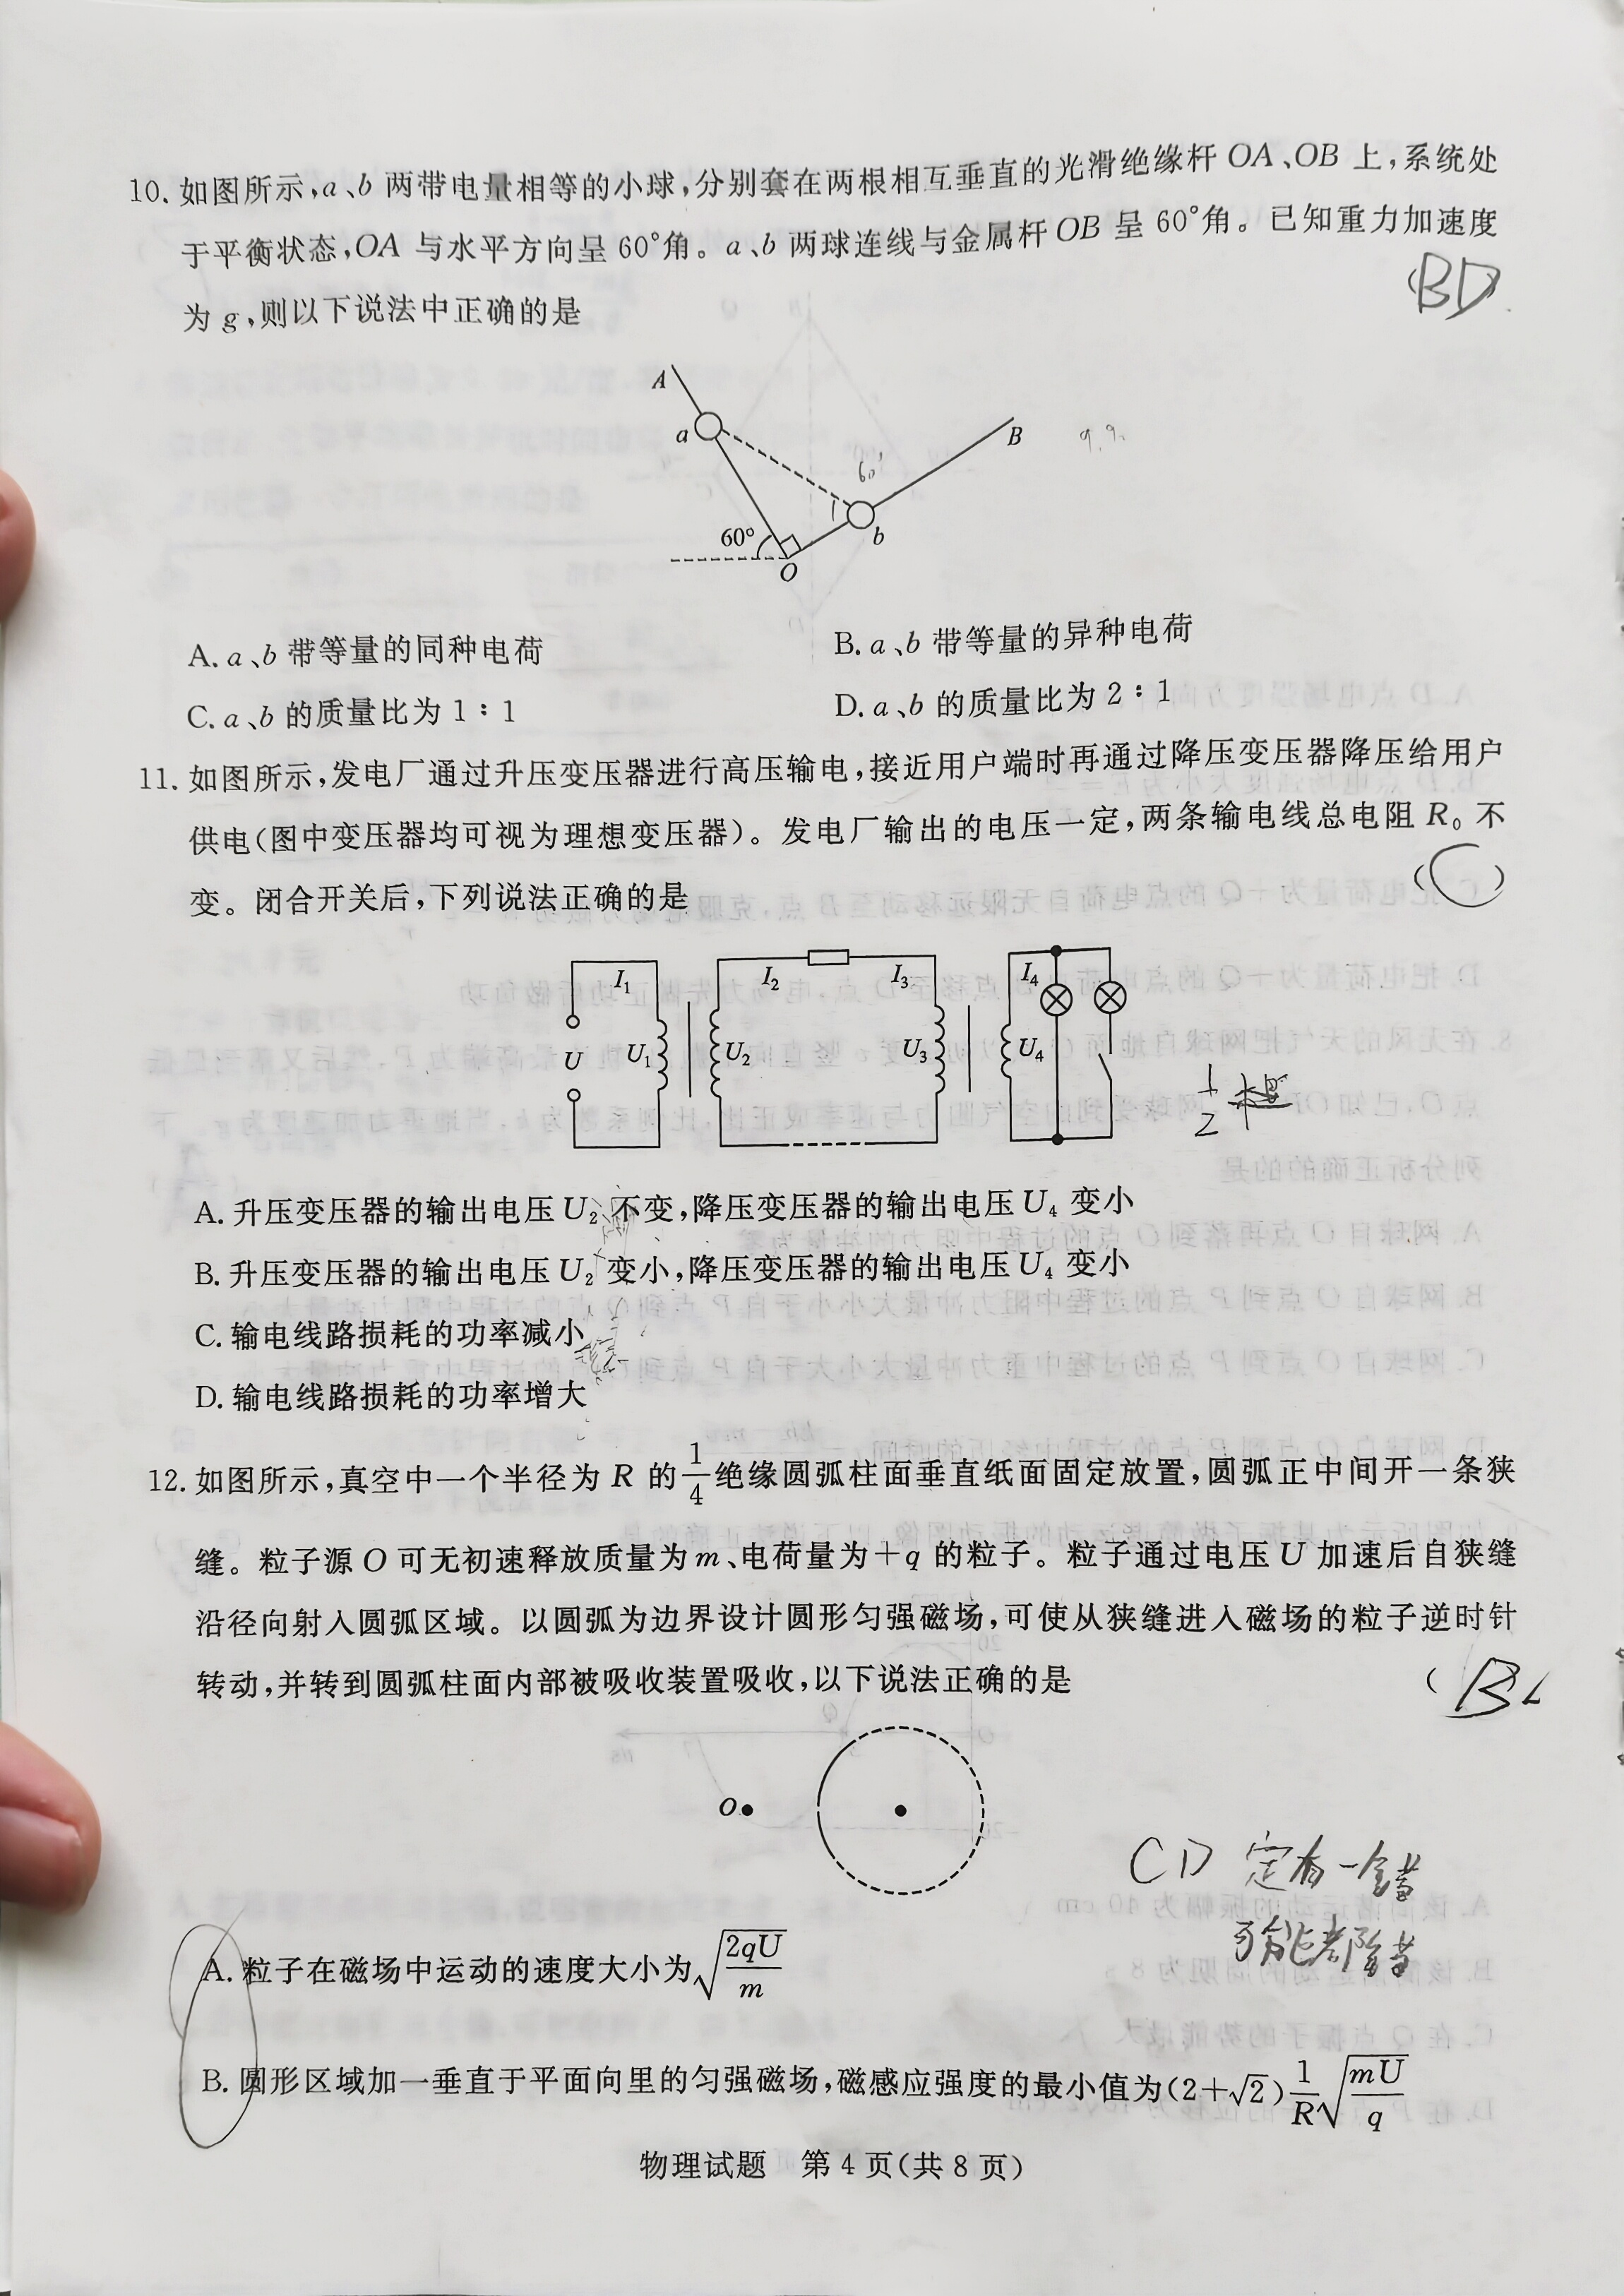 10. 如图所示,a、b 两带电量相等的小球,分别套在两根相互垂直的光滑绝缘杆 OA、OB 上,系统处
于平衡状态,OA 与水平方向呈 60°角。a、b 两球连线与金属杆 OB 呈 60°角。已知重力加速度
为 g,则以下说法中正确的是
(BD)
A
a
B
60'
q.q.
60°
b
O
A. a、b 带等量的同种电荷
B. a、b 带等量的异种电荷
C. a、b 的质量比为 1∶1
D. a、b 的质量比为 2∶1
11. 如图所示,发电厂通过升压变压器进行高压输电,接近用户端时再通过降压变压器降压给用户
供电(图中变压器均可视为理想变压器)。发电厂输出的电压一定,两条输电线总电阻 R₀ 不
变。闭合开关后,下列说法正确的是
(C)
I₁ I₂ I₃ I₄
U U₁ U₂ U₃ U₄
1/2
A. 升压变压器的输出电压 U₂ 不变,降压变压器的输出电压 U₄ 变小
B. 升压变压器的输出电压 U₂ 变小,降压变压器的输出电压 U₄ 变小
C. 输电线路损耗的功率减小
D. 输电线路损耗的功率增大
12. 如图所示,真空中一个半径为 R 的 1/4 绝缘圆弧柱面垂直纸面固定放置,圆弧正中间开一条狭
缝。粒子源 O 可无初速释放质量为 m、电荷量为+q 的粒子。粒子通过电压 U 加速后自狭缝
沿径向射入圆弧区域。以圆弧为边界设计圆形匀强磁场,可使从狭缝进入磁场的粒子逆时针
转动,并转到圆弧柱面内部被吸收装置吸收,以下说法正确的是
(B
O
CD 定有一错
A. 粒子在磁场中运动的速度大小为√(2qU/m)
B. 圆形区域加一垂直于平面向里的匀强磁场,磁感应强度的最小值为(2+√2)1/R√(mU/q)
物理试题 第 4 页(共 8 页)